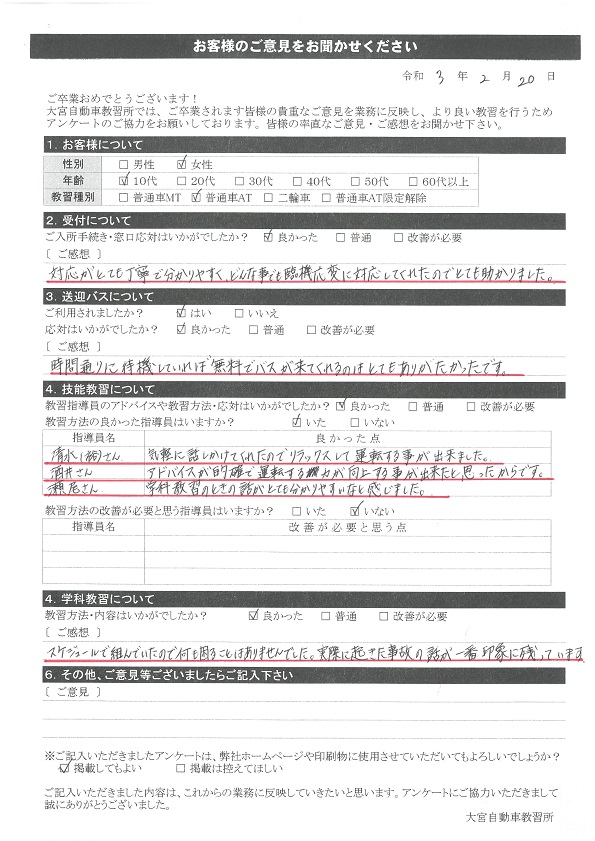 お客様のご意見をお聞かせください
令和 3 年 2 月 20 日
ご卒業おめでとうございます！
大宮自動車教習所では、ご卒業されます皆様の貴重なご意見を業務に反映し、より良い教習を行うため
アンケートのご協力をお願いしております。皆様の率直なご意見・ご感想をお聞かせ下さい。
1. お客様について
性別 □ 男性 ☑ 女性
年齢 ☑ 10代 □ 20代 □ 30代 □ 40代 □ 50代 □ 60代以上
教習種別 □ 普通車MT ☑ 普通車AT □ 二輪車 □ 普通車AT限定解除
2. 受付について
ご入所手続き・窓口応対はいかがでしたか？ ☑ 良かった □ 普通 □ 改善が必要
［ ご感想 ］
対応がとても丁寧で分かりやすく、どんな事でも臨機応変に対応してくれたのでとても助かりました。
3. 送迎バスについて
ご利用されましたか？ ☑ はい □ いいえ
応対はいかがでしたか？ ☑ 良かった □ 普通 □ 改善が必要
［ ご感想 ］
時間通りに待機していれば無料でバスが来てくれるのはとてもありがたかったです。
4. 技能教習について
教習指導員のアドバイスや教習方法・応対はいかがでしたか？ ☑ 良かった □ 普通 □ 改善が必要
教習方法の良かった指導員はいますか？ ☑ いた □ いない
指導員名 良かった点
清水(裕)さん 気軽に話しかけてくれたのでリラックスして運転する事が出来ました。
酒井さん アドバイスが的確で運転する能力が向上する事が出来たと思ったからです。
瀬尾さん 学科教習のときの話がとても分かりやすいなと感じました。
教習方法の改善が必要と思う指導員はいますか？ □ いた ☑ いない
指導員名 改善が必要と思う点
4. 学科教習について
教習方法・内容はいかがでしたか？ ☑ 良かった □ 普通 □ 改善が必要
［ ご感想 ］
スケジュールで組んでいたので何も困ることはありませんでした。実際に起きた事故の話が一番印象に残っています
6. その他、ご意見等ございましたらご記入下さい
［ ご意見 ］
※ご記入いただきましたアンケートは、弊社ホームページや印刷物に使用させていただいてもよろしいでしょうか？
☑ 掲載してもよい □ 掲載は控えてほしい
ご記入いただきました内容は、これからの業務に反映していきたいと思います。アンケートにご協力いただきまして
誠にありがとうございました。
大宮自動車教習所